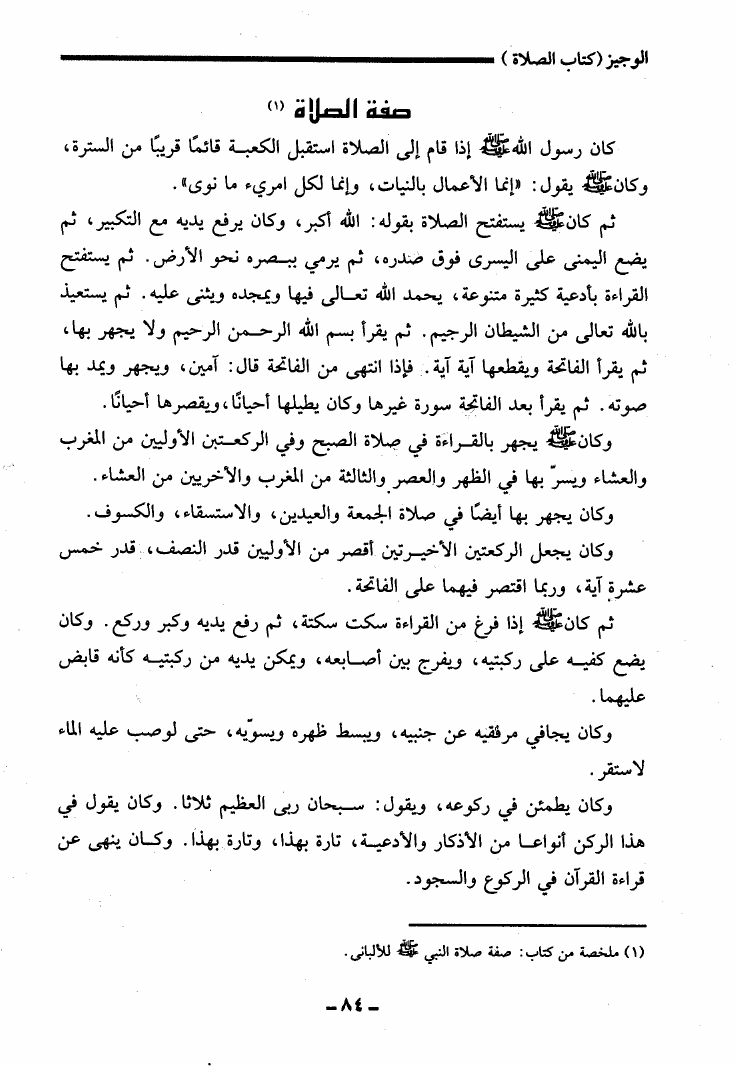 الوجيز (كتاب الصلاة)
صفة الصلاة (١)
كان رسول الله ﷺ إذا قام إلى الصلاة استقبل الكعبة قائمًا قريبًا من السترة،
وكان ﷺ يقول: «إنما الأعمال بالنيات، وإنما لكل امريء ما نوى».
ثم كان ﷺ يستفتح الصلاة بقوله: الله أكبر، وكان يرفع يديه مع التكبير، ثم
يضع اليمنى على اليسرى فوق صدره، ثم يرمي ببصره نحو الأرض. ثم يستفتح
القراءة بأدعية كثيرة متنوعة، يحمد الله تعالى فيها ويمجده ويثنى عليه. ثم يستعيذ
بالله تعالى من الشيطان الرجيم. ثم يقرأ بسم الله الرحمن الرحيم ولا يجهر بها،
ثم يقرأ الفاتحة ويقطعها آية آية. فإذا انتهى من الفاتحة قال: آمين، ويجهر ويمد بها
صوته. ثم يقرأ بعد الفاتحة سورة غيرها وكان يطيلها أحيانًا، ويقصرها أحيانًا.
وكان ﷺ يجهر بالقراءة في صلاة الصبح وفي الركعتين الأوليين من المغرب
والعشاء ويسرّ بها في الظهر والعصر والثالثة من المغرب والأخريين من العشاء.
وكان يجهر بها أيضًا في صلاة الجمعة والعيدين، والاستسقاء، والكسوف.
وكان يجعل الركعتين الأخيرتين أقصر من الأوليين قدر النصف، قدر خمس
عشرة آية، وربما اقتصر فيهما على الفاتحة.
ثم كان ﷺ إذا فرغ من القراءة سكت سكتة، ثم رفع يديه وكبر وركع. وكان
يضع كفيه على ركبتيه، ويفرج بين أصابعه، ويمكن يديه من ركبتيه كأنه قابض
عليهما.
وكان يجافي مرفقيه عن جنبيه، ويبسط ظهره ويسوّيه، حتى لوصب عليه الماء
لاستقر.
وكان يطمئن في ركوعه، ويقول: سبحان ربى العظيم ثلاثا. وكان يقول في
هذا الركن أنواعا من الأذكار والأدعية، تارة بهذا، وتارة بهذا. وكان ينهى عن
قراءة القرآن في الركوع والسجود.
(١) ملخصة من كتاب: صفة صلاة النبي ﷺ للألبانى.
- ٨٤ -